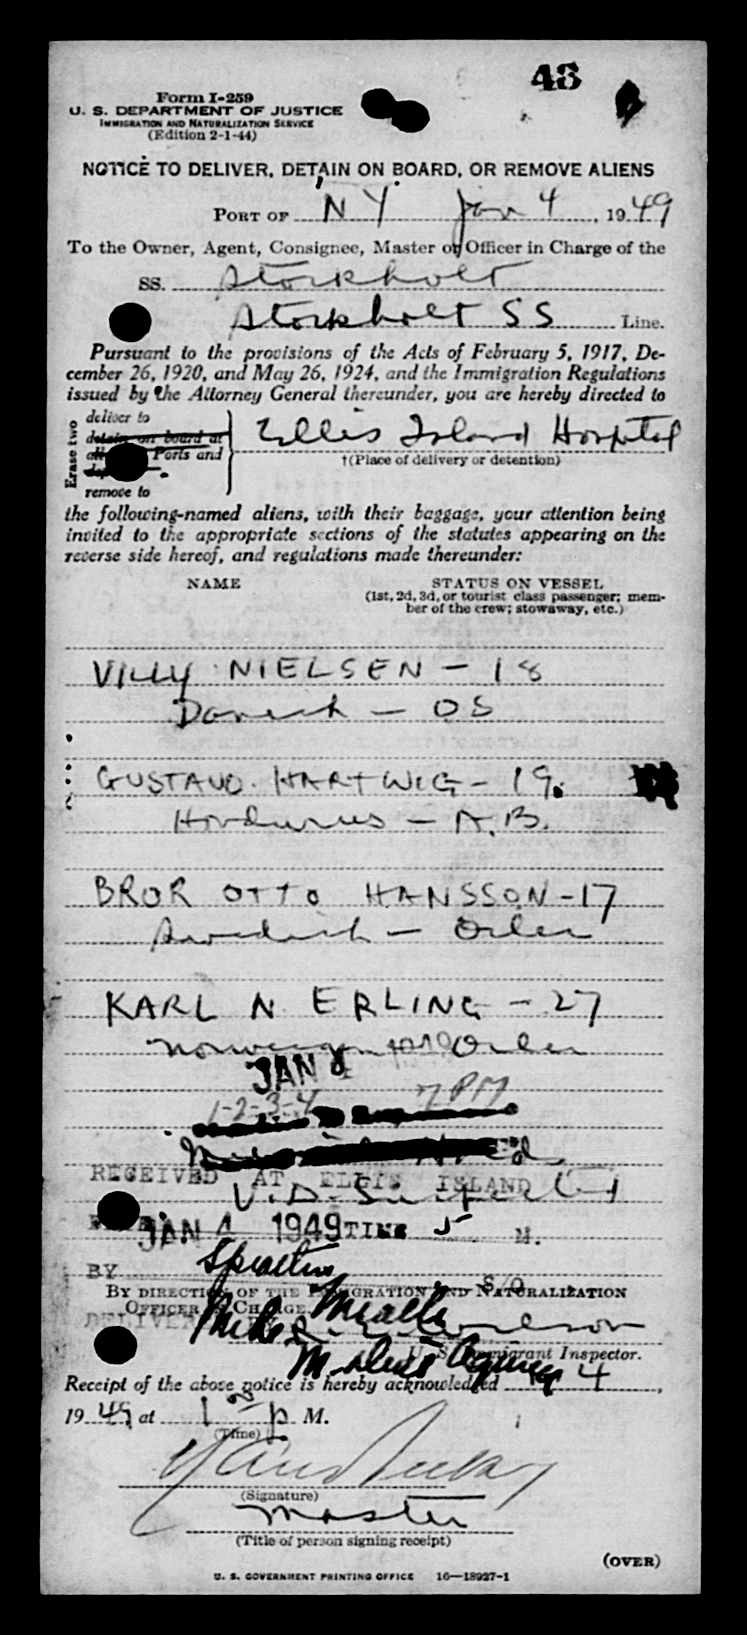 43
Form I-259
U. S. DEPARTMENT OF JUSTICE
IMMIGRATION AND NATURALIZATION SERVICE
(Edition 2-1-44)
NOTICE TO DELIVER, DETAIN ON BOARD, OR REMOVE ALIENS
PORT OF N Y Jan 4, 1949
To the Owner, Agent, Consignee, Master or Officer in Charge of the
SS. Stockholt
Stockholt SS Line.
Pursuant to the provisions of the Acts of February 5, 1917, De-
cember 26, 1920, and May 26, 1924, and the Immigration Regulations
issued by the Attorney General thereunder, you are hereby directed to
Erase two
deliver to
detain on board at
Ports and
remove to
Ellis Island Hospital
†(Place of delivery or detention)
the following-named aliens, with their baggage, your attention being
invited to the appropriate sections of the statutes appearing on the
reverse side hereof, and regulations made thereunder:
NAME STATUS ON VESSEL
(1st, 2d, 3d, or tourist class passenger; mem-
ber of the crew; stowaway, etc.)
VILLY NIELSEN - 18
Danish - OS
GUSTAVO HARTWIG - 19
Honduras - A.B.
BROR OTTO HANSSON - 17
Swedish - Oiler
KARL N ERLING - 27
Norwegian Oiler
JAN
1-2-3-4 7 PM
RECEIVED AT ELLIS ISLAND
JAN 4 1949 TIME 5 M.
BY
BY DIRECTION OF THE IMMIGRATION AND NATURALIZATION
OFFICER IN CHARGE
U. S. Immigrant Inspector.
Receipt of the above notice is hereby acknowledged 4,
1949 at 1 P M.
(Time)
(Signature)
Master
(Title of person signing receipt)
(OVER)
U. S. GOVERNMENT PRINTING OFFICE 16—18927-1